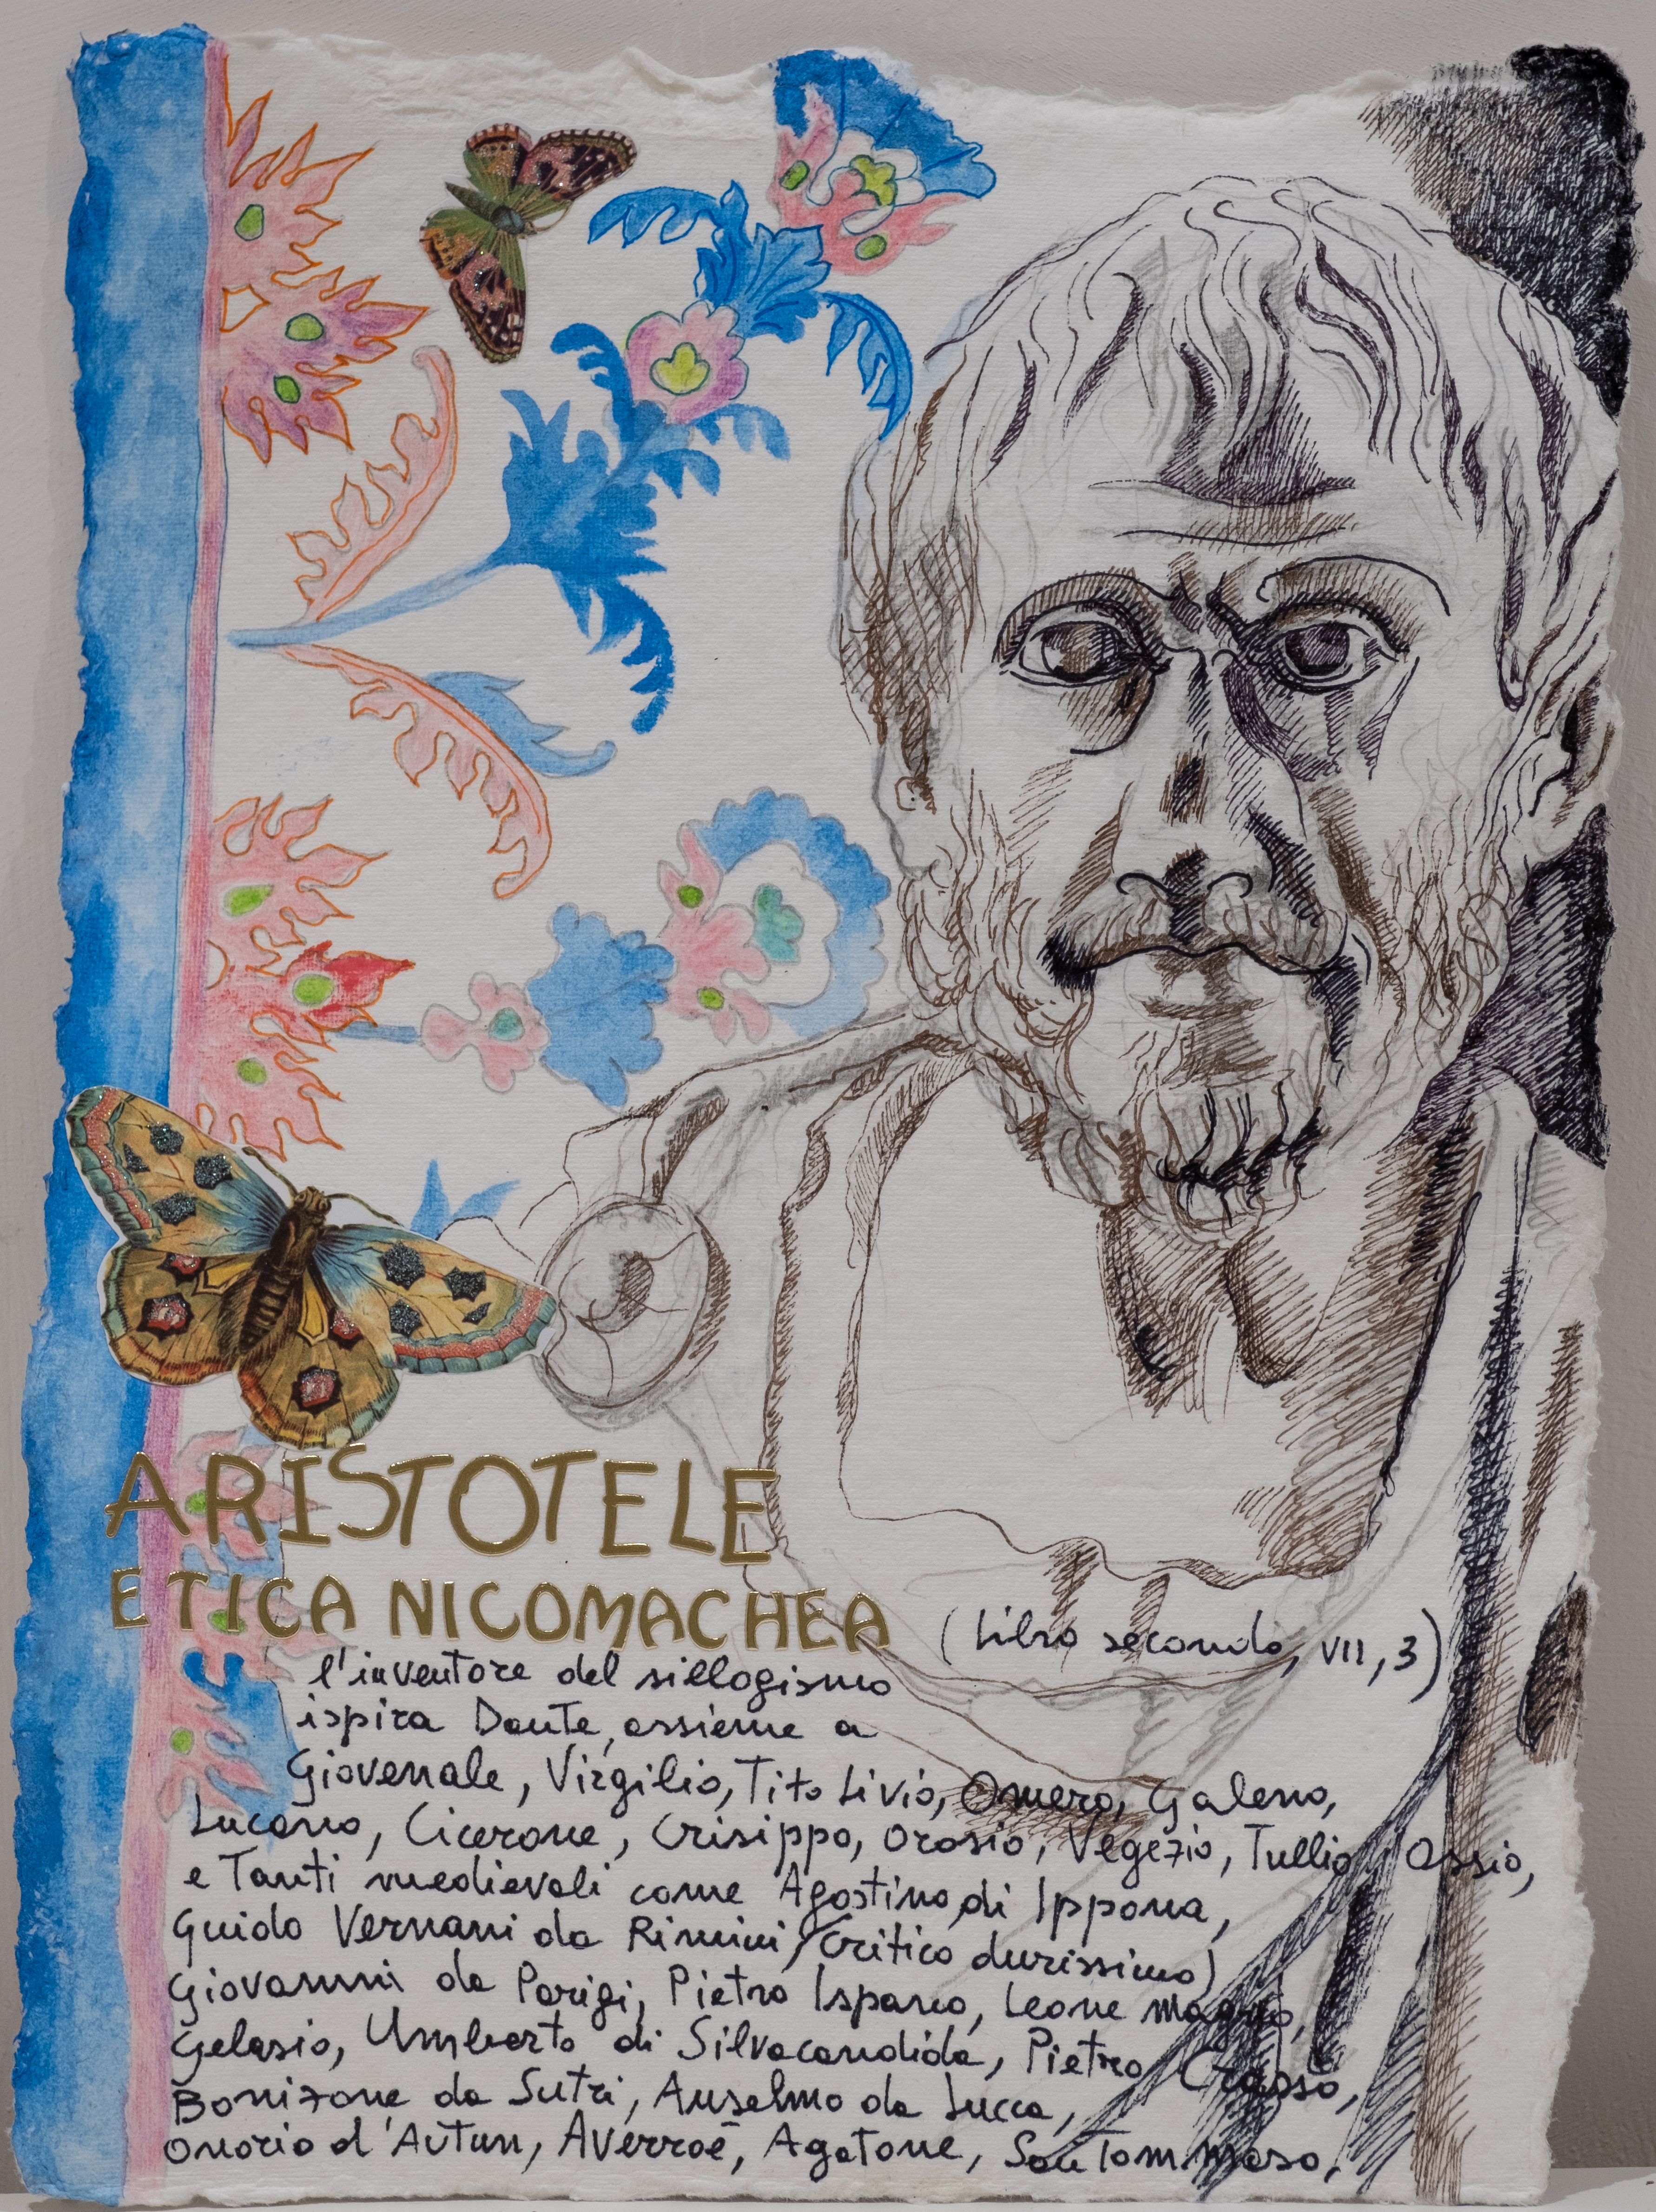 ARISTOTELE
ETICA NICOMACHEA (Libro secondo, VII, 3)
l'inventore del sillogismo
ispira Dante, assieme a
Giovenale, Virgilio, Tito Livio, Omero, Galeno,
Lucano, Cicerone, Crisippo, Orosio, Vegezio, Tullio,
e Tanti medievali come Agostino di Ippona,
Guido Vernani da Rimini (critico durissimo)
Giovanni da Parigi, Pietro Ispano, Leone Magno,
Gelasio, Umberto di Silvacandida, Pietro Crasso,
Bonizone da Sutri, Anselmo da Lucca,
Onorio d'Autun, Averroè, Agatone, San Tommaso,